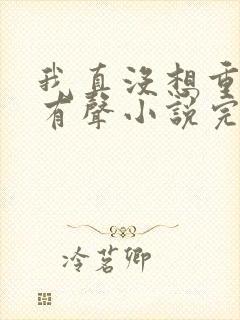 我真没想重
有聲小說完
冷茗卿